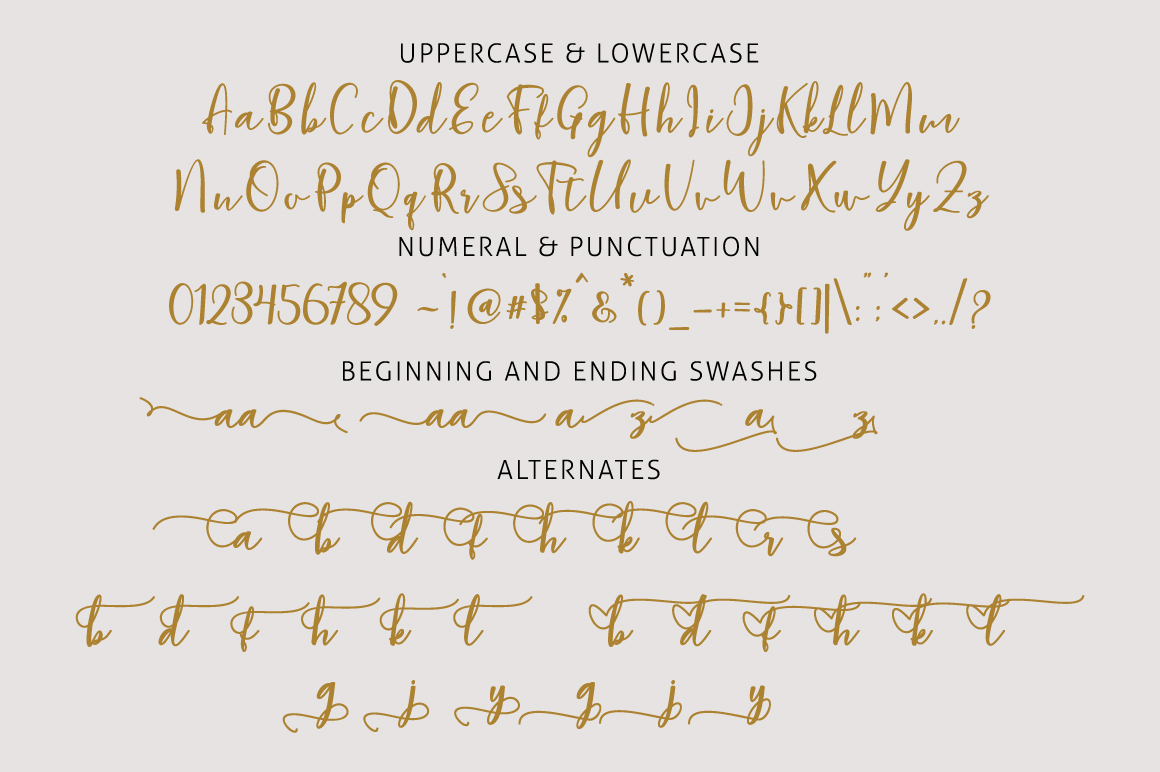 UPPERCASE & LOWERCASE
AaBbCcDdEeFfGgHhIiJjKkLlMm
NnOoPpQqRrSsTtUuVvWwXxYyZz
NUMERAL & PUNCTUATION
0123456789 ~`!@#$%^&*()_-+={}[]|\:";'<>,./?
BEGINNING AND ENDING SWASHES
aa aa a z a z
ALTERNATES
a b d f h k t r s
b d f h k t b d f h k t
g j y g j y